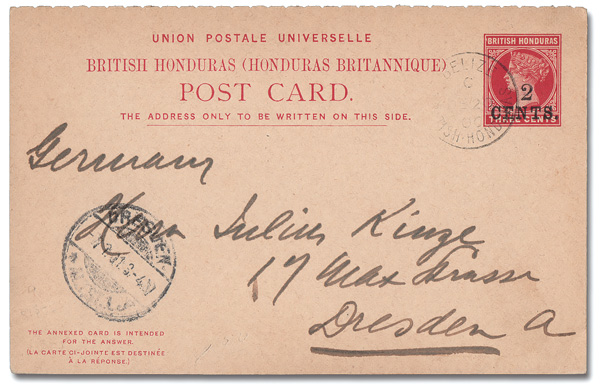 UNION POSTALE UNIVERSELLE
BRITISH HONDURAS (HONDURAS BRITANNIQUE)
POST CARD.
THE ADDRESS ONLY TO BE WRITTEN ON THIS SIDE.
BRITISH HONDURAS
2
CENTS.
THREE CENTS
BELIZE
Germany
Herrn Julius Kinze
17 Max Strasse
Dresden A
DRESDEN
THE ANNEXED CARD IS INTENDED
FOR THE ANSWER.
(LA CARTE CI-JOINTE EST DESTINÉE
À LA RÉPONSE.)